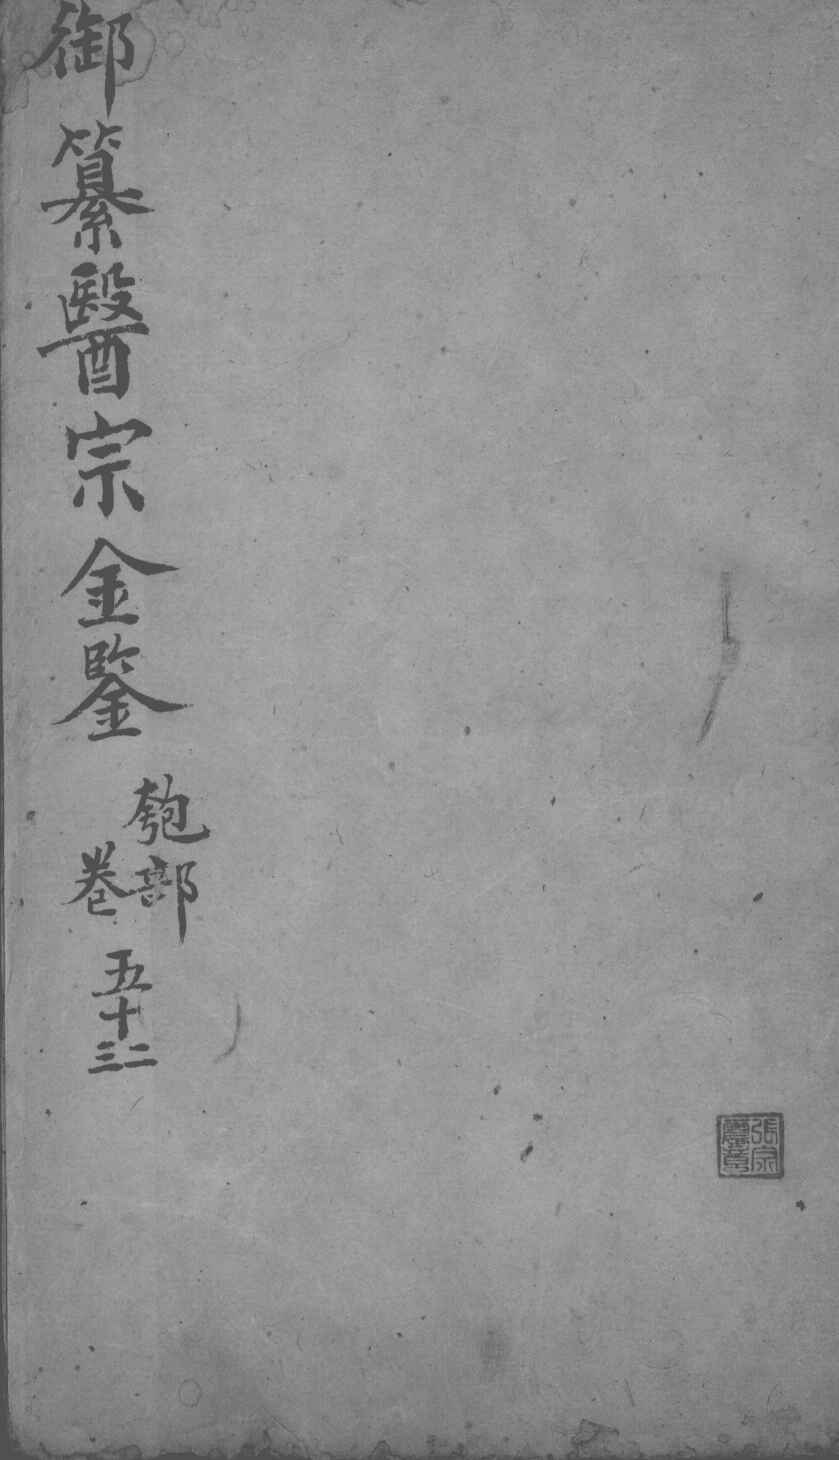 御纂醫宗金鑒
匏部
卷
五十二三
張宗